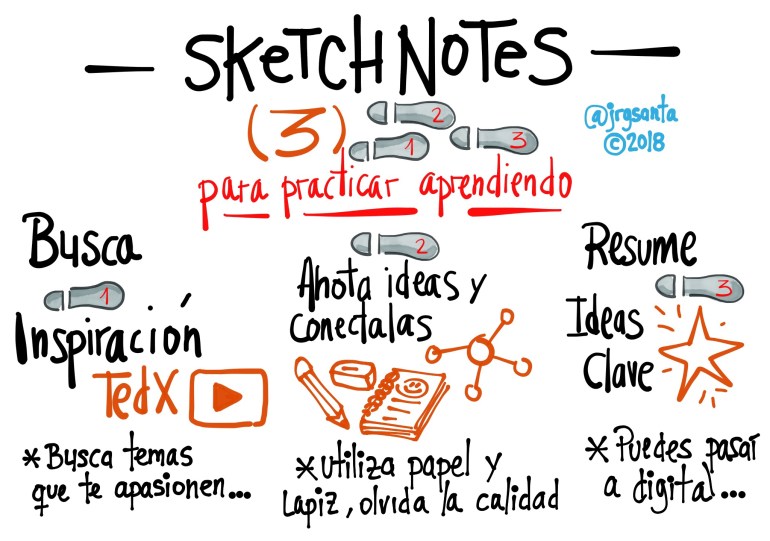 SKETCHNOTES
(3)
1
2
3
para practicar aprendiendo
@jrgsanta
©2018
Busca
1
Inspiración
TedX
*Busca temas
que te apasionen...
2
Anota ideas y
conectalas
*utiliza papel y
Lapiz, olvida la calidad
Resume
3
Ideas
Clave
*Puedes pasar
a digital...